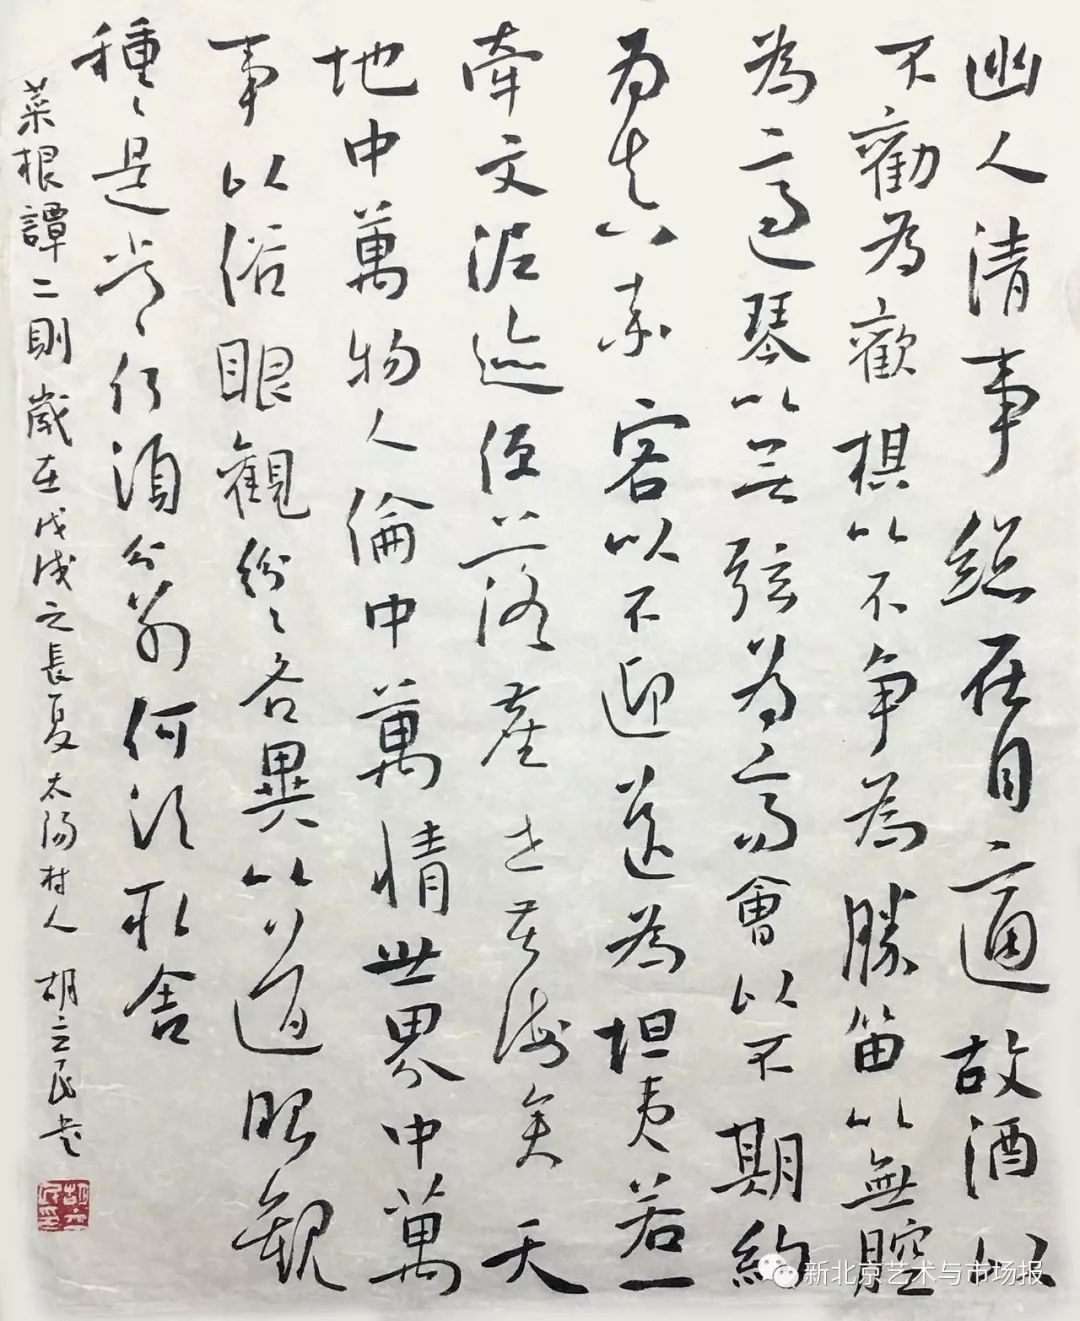 幽人清事總在自適故酒以
不勸為歡棋以不争為勝笛以無腔
為適琴以无弦為高會以不期約
为真率客以不迎送為坦夷若一
牽文泥迹便落塵世苦海矣天
地中萬物人倫中萬情世界中萬
事以俗眼觀紛〻各異以道眼觀
種〻是常〻何須分别何須取舍
菜根譚二則歲在戊戌之長夏太陽村人胡立民書
胡立民印
新北京艺术与市场报